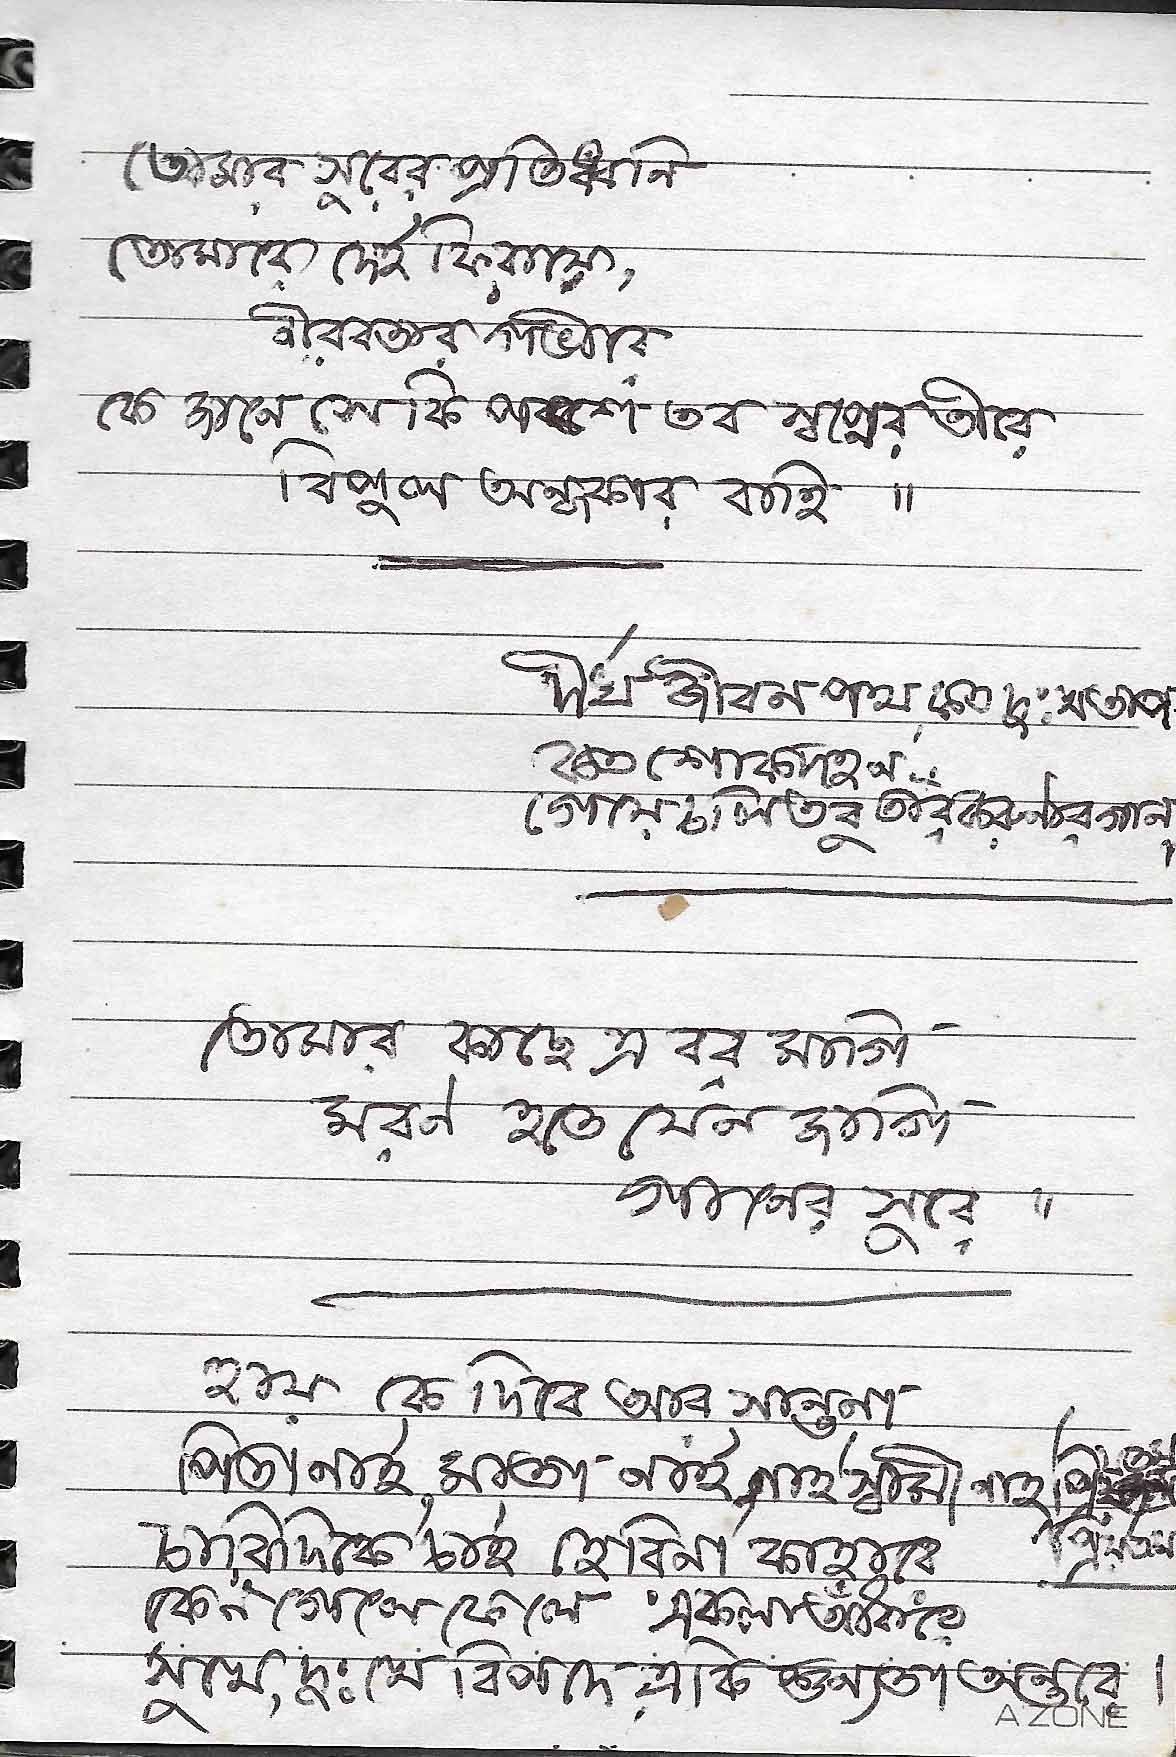 তোমার সুরের প্রতিধ্বনি
তোমারে দেই ফিরায়ে,
নীরবতার গভীরে
কে জানে সে কি পরশে তব স্বপ্নের তীরে
বিপুল অন্ধকার বাহি ॥
দীর্ঘ জীবন পথ, কত দুঃখতাপ
কত শোকদহন..
গেয়ে চলি তবু তাঁর করুণার গান,
তোমার কাছে এ বর মাগি
মরণ হতে যেন জাগি
গানের সুরে ॥
হায় কে দিবে আর সান্ত্বনা
পিতা নাই, মাতা নাই, নাই স্বামী নাই
প্রিয়তম
চারিদিকে চাই হেরিনা কাহারে
কেন গেলে ফেলে একলা আঁধারে
সুখে, দুঃখে বিপদে একি শুন্যতা অন্তরে।
A'ZONE